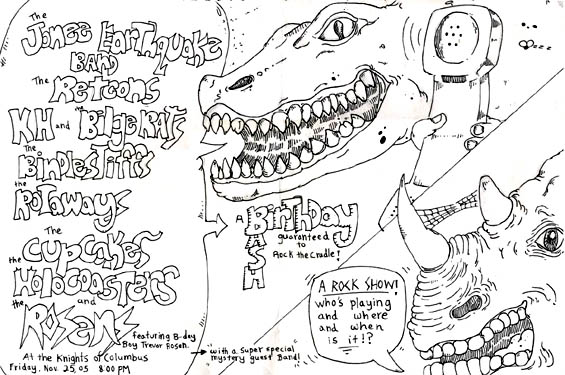 The
Jonee Earthquake
BAND
The Retcons
KH and Bilge Rats
The
BindleStiffs
the
Rotaways
The
Cupcakes
the
Holocoasters
and
the
Rosens
featuring B-day
Boy Trevor Rosen.
At the Knights of Columbus
Friday, Nov. 25, 05 8:00 PM
with a Super special
mystery guest Band!
A Birthday
BASH
guaranteed
to
Rock the Cradle!
A ROCK SHOW!
who's playing
and where
and when
is it!?